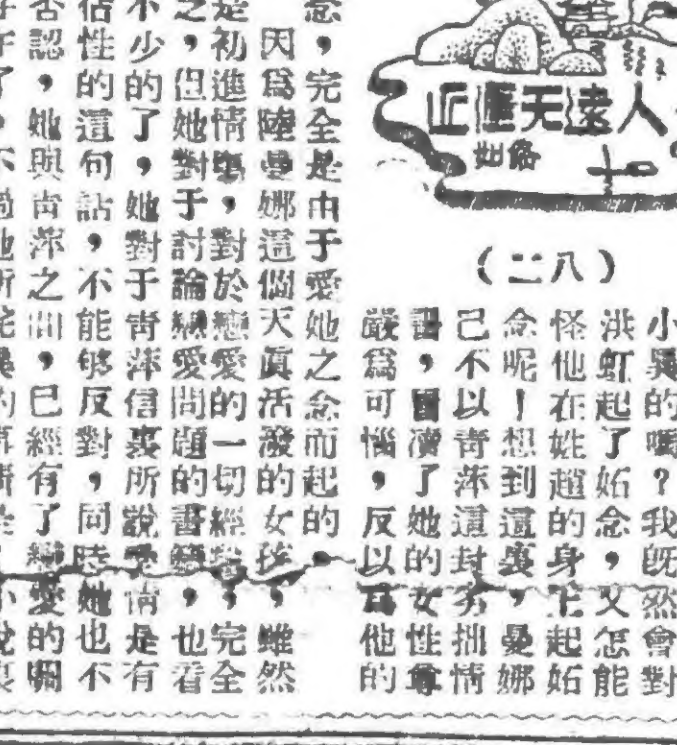 人遠天涯近
(二八)
小異的嗎？我既然會對
洪虹起了妬念，又怎能
怪他在姓趙的身上起妬
念呢！想到這裏，曼娜
己不以青萍這封劣拙情
書，冒瀆了她的女性尊
嚴爲可惱，反以爲他的
念，完全是由于愛她之念而起的
因爲陸曼娜這個天眞活潑的女孩，雖然
是初進情塲，對於戀愛的一切經驗，完全
之，但她對于討論戀愛問題的書籍，也看
不少的了，她對于青萍信裏所說愛情是有
佔性的這句話，不能够反對，同時她也不
否認，她與青萍之間，巳經有了戀愛的關
了，不過她所的事情是小說裏